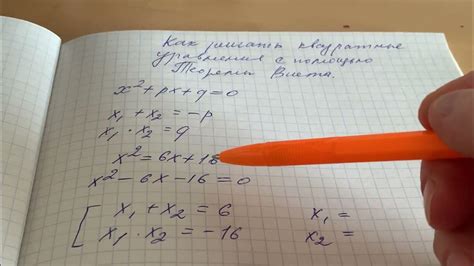 Как решать квадратные
уравнения с помощью
Теоремы Виета.
x²+px+q=0
x₁+x₂=-p
x₁·x₂=q
x²=6x+16
x²-6x-16=0
[ x₁+x₂=6 x₁=
x₁·x₂=-16 x₂=